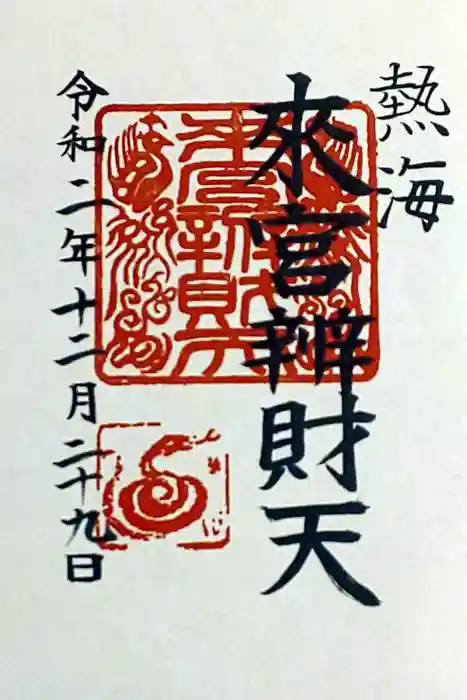 熱海
來宮辨財天
令和二年十二月二十九日